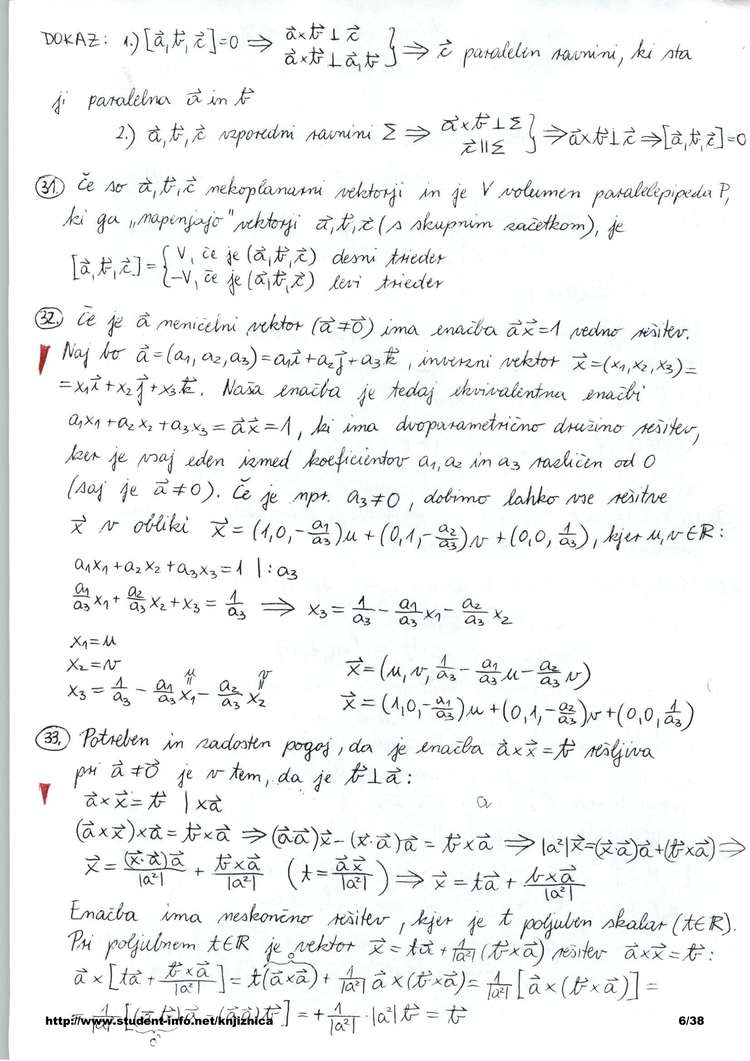 DOKAZ: 1.) [a⃗,b⃗,c⃗]=0 ⇒ a⃗×b⃗ ⊥ c⃗ , a⃗×b⃗ ⊥ a⃗,b⃗ } ⇒ c⃗ paralelen ravnini, ki sta
ji paralelna a⃗ in b⃗
2.) a⃗,b⃗,c⃗ vzporedni ravnini Σ ⇒ a⃗×b⃗ ⊥ Σ , c⃗ || Σ } ⇒ a⃗×b⃗ ⊥ c⃗ ⇒ [a⃗,b⃗,c⃗]=0
31. Če so a⃗,b⃗,c⃗ nekoplanarni vektorji in je V volumen paralelepipeda P,
ki ga „napenjajo" vektorji a⃗,b⃗,c⃗ (s skupnim začetkom), je
[a⃗,b⃗,c⃗] = { V, če je (a⃗,b⃗,c⃗) desni trieder
-V, če je (a⃗,b⃗,c⃗) levi trieder
32. Če je a⃗ neničelni vektor (a⃗≠0⃗) ima enačba a⃗x⃗=1 vedno rešitev.
Naj bo a⃗=(a₁,a₂,a₃)=a₁i⃗+a₂j⃗+a₃k⃗, inverzni vektor x⃗=(x₁,x₂,x₃)=
=x₁i⃗+x₂j⃗+x₃k⃗. Naša enačba je tedaj ekvivalentna enačbi
a₁x₁+a₂x₂+a₃x₃=a⃗x⃗=1, ki ima dvoparametrično družino rešitev,
ker je vsaj eden izmed koeficientov a₁,a₂ in a₃ različen od 0
(saj je a⃗≠0). Če je npr. a₃≠0, dobimo lahko vse rešitve
x⃗ v obliki x⃗=(1,0,-a₁/a₃)u+(0,1,-a₂/a₃)v+(0,0,1/a₃), kjer u,v∈R:
a₁x₁+a₂x₂+a₃x₃=1 |:a₃
a₁/a₃ x₁ + a₂/a₃ x₂ + x₃ = 1/a₃ ⇒ x₃ = 1/a₃ - a₁/a₃ x₁ - a₂/a₃ x₂
x₁=u
x₂=v
x⃗=(u,v,1/a₃ - a₁/a₃ u - a₂/a₃ v)
u v
x₃ = 1/a₃ - a₁/a₃ x₁ - a₂/a₃ x₂
x⃗=(1,0,-a₁/a₃)u+(0,1,-a₂/a₃)v+(0,0,1/a₃)
33. Potreben in zadosten pogoj, da je enačba a⃗×x⃗=b⃗ rešljiva
pri a⃗≠0⃗ je v tem, da je b⃗⊥a⃗:
a⃗×x⃗=b⃗ |×a⃗
a
(a⃗×x⃗)×a⃗=b⃗×a⃗ ⇒ (a⃗a⃗)x⃗-(x⃗·a⃗)a⃗=b⃗×a⃗ ⇒ |a²|x⃗=(x⃗·a⃗)a⃗+(b⃗×a⃗) ⇒
x⃗ = (x⃗·a⃗)a⃗/|a²| + b⃗×a⃗/|a²| (t = a⃗x⃗/|a²|) ⇒ x⃗ = ta⃗ + b×a⃗/|a²|
Enačba ima neskončno rešitev, kjer je t poljuben skalar (t∈R).
Pri poljubnem t∈R je vektor x⃗=ta⃗+1/|a²|(b⃗×a⃗) rešitev a⃗×x⃗=b⃗:
0
a⃗×[ta⃗ + b⃗×a⃗/|a²|] = t(a⃗×a⃗) + 1/|a²| a⃗×(b⃗×a⃗) = 1/|a²| [a⃗×(b⃗×a⃗)] =
b⃗] = + 1/|a²| · |a²|b⃗ = b⃗
http://www.student-info.net/knjiznica
6/38